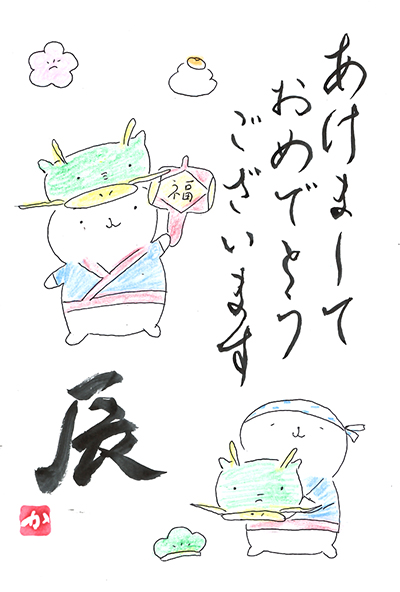 あけまして
おめでとう
ございます
福
辰
か